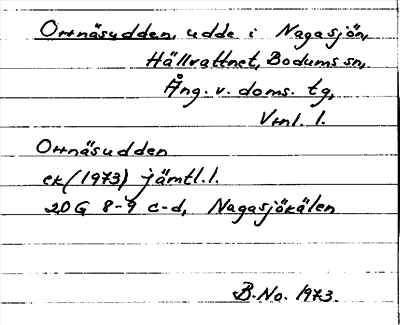 Orrnäsudden, udde i Nagasjön,
Hällvattnet, Bodums sn,
Ång. v. doms. tg,
Vrnl. l.
Orrnäsudden
ek (1973) jämtl. l.
20G 8-9 c-d, Nagasjökälen
B. No. 1973.